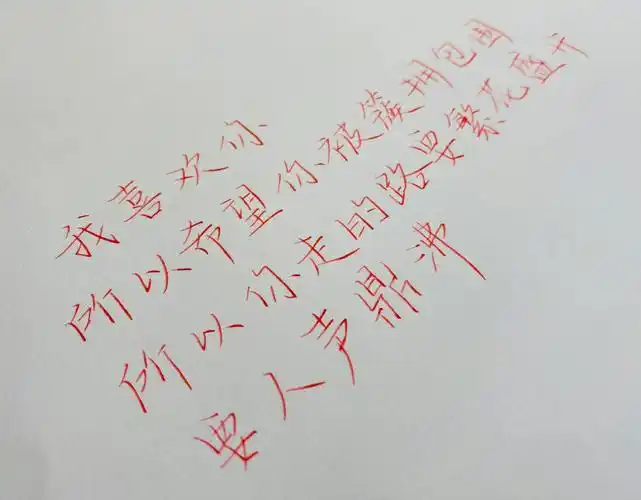 我喜欢你
所以希望你被簇拥包围
所以你走的路要繁花盛开
要人声鼎沸